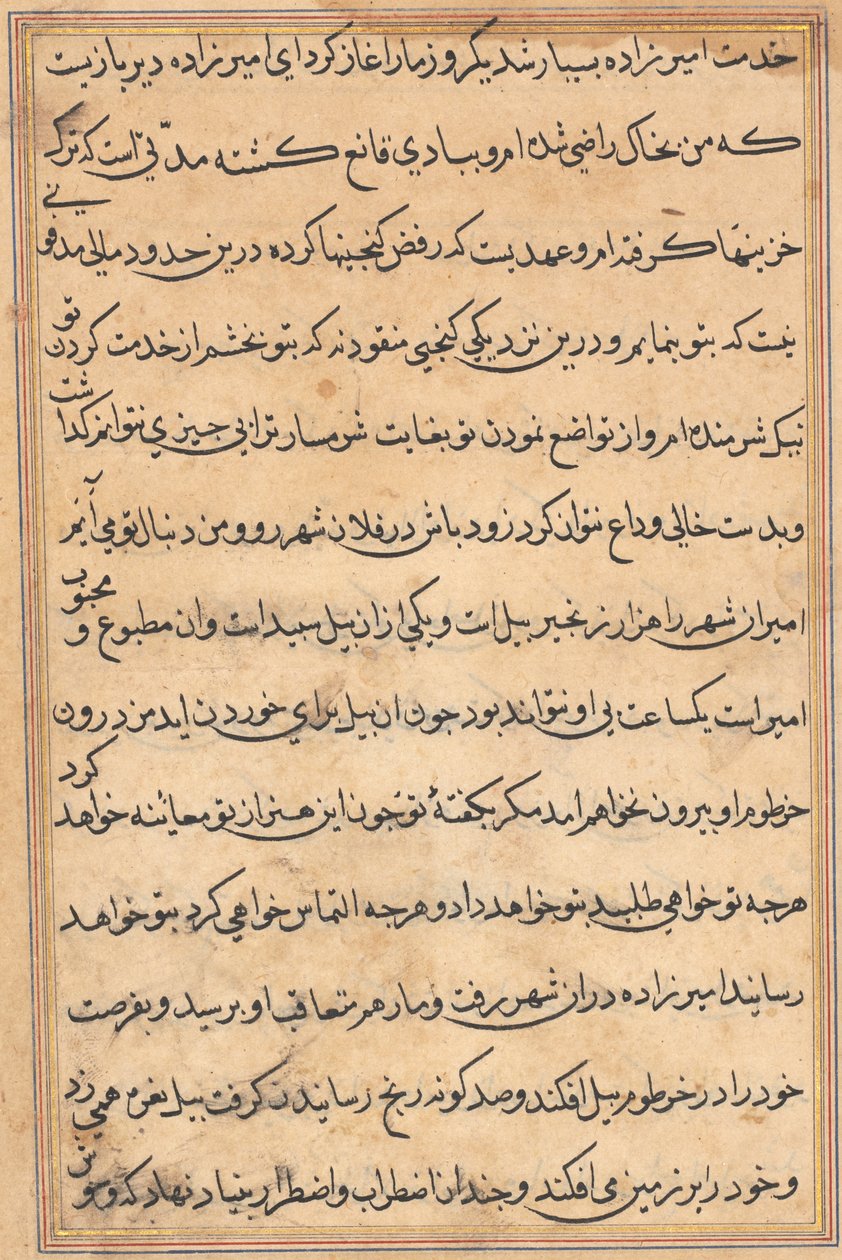 خدمت امیر زاده بسیار شد یکروز مار اغاز کرد ای امیر زاده دیر باز یست
که من بخاک راضی شده ام و ببادی قانع کشته مدّتی است که ترک
خزینهَا کرفته ام و عهد یست که رفض کنجینها کرده درین حدود مالی مدفونی
نیست که بتو بنمایم و درین نزدیکی کنجیی منقود نه که بتو بخشم از خدمت کردن تو
نیک شرمنده ام و از تواضع نمودن تو بغایت شرمسار ترا بی جیزی نتوانم کداشت
و بدست خالی وداع نتوان کرد زود باش در فلان شهر رو و من دنبال تو می آیم
امیر ان شهر را هزار زنجیر بیل است و یکی از ان بیل سبید است و ان مطبوع و محبوب
امیر است یکساعت بی او نتواند بود جون ان بیل برای خوردن اید من درون
خرطوم او بیرون نخواهم امد مکر بکفتهٔ تو جون این هنر از تو معائنه خواهد کرد
هرجه تو خواهی طلبید بتو خواهد داد و هرجه التماس خواهی کرد بتو خواهد
رسانید امیر زاده دران شهر رفت و مار هم متعاقب او برسید و بفرصت
خود را در خرطوم بیل افکند و صد کونه رنج رسانیدن کرفت بیل نعره همی زد
و خود را بر زمین می افکند و جندان اضطراب و اضطرار بنیاد نهاد که وحوش